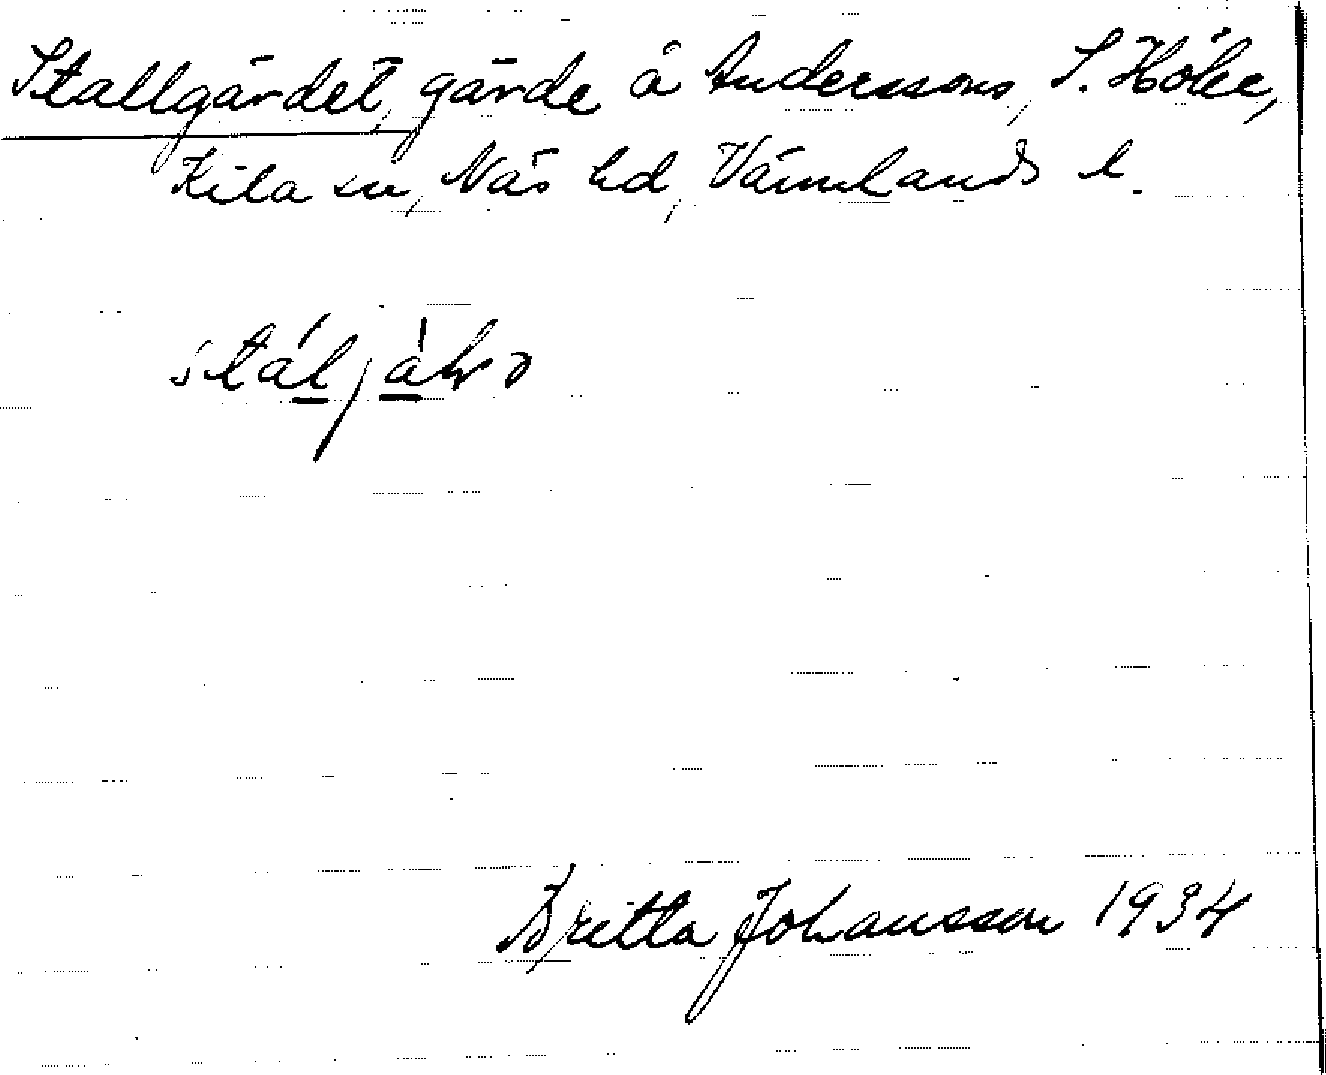 Stallgärdet, gärde å Anderssons, S. Höke,
Kila sn, Näs hd, Värmlands l.
Britta Johansson 1934